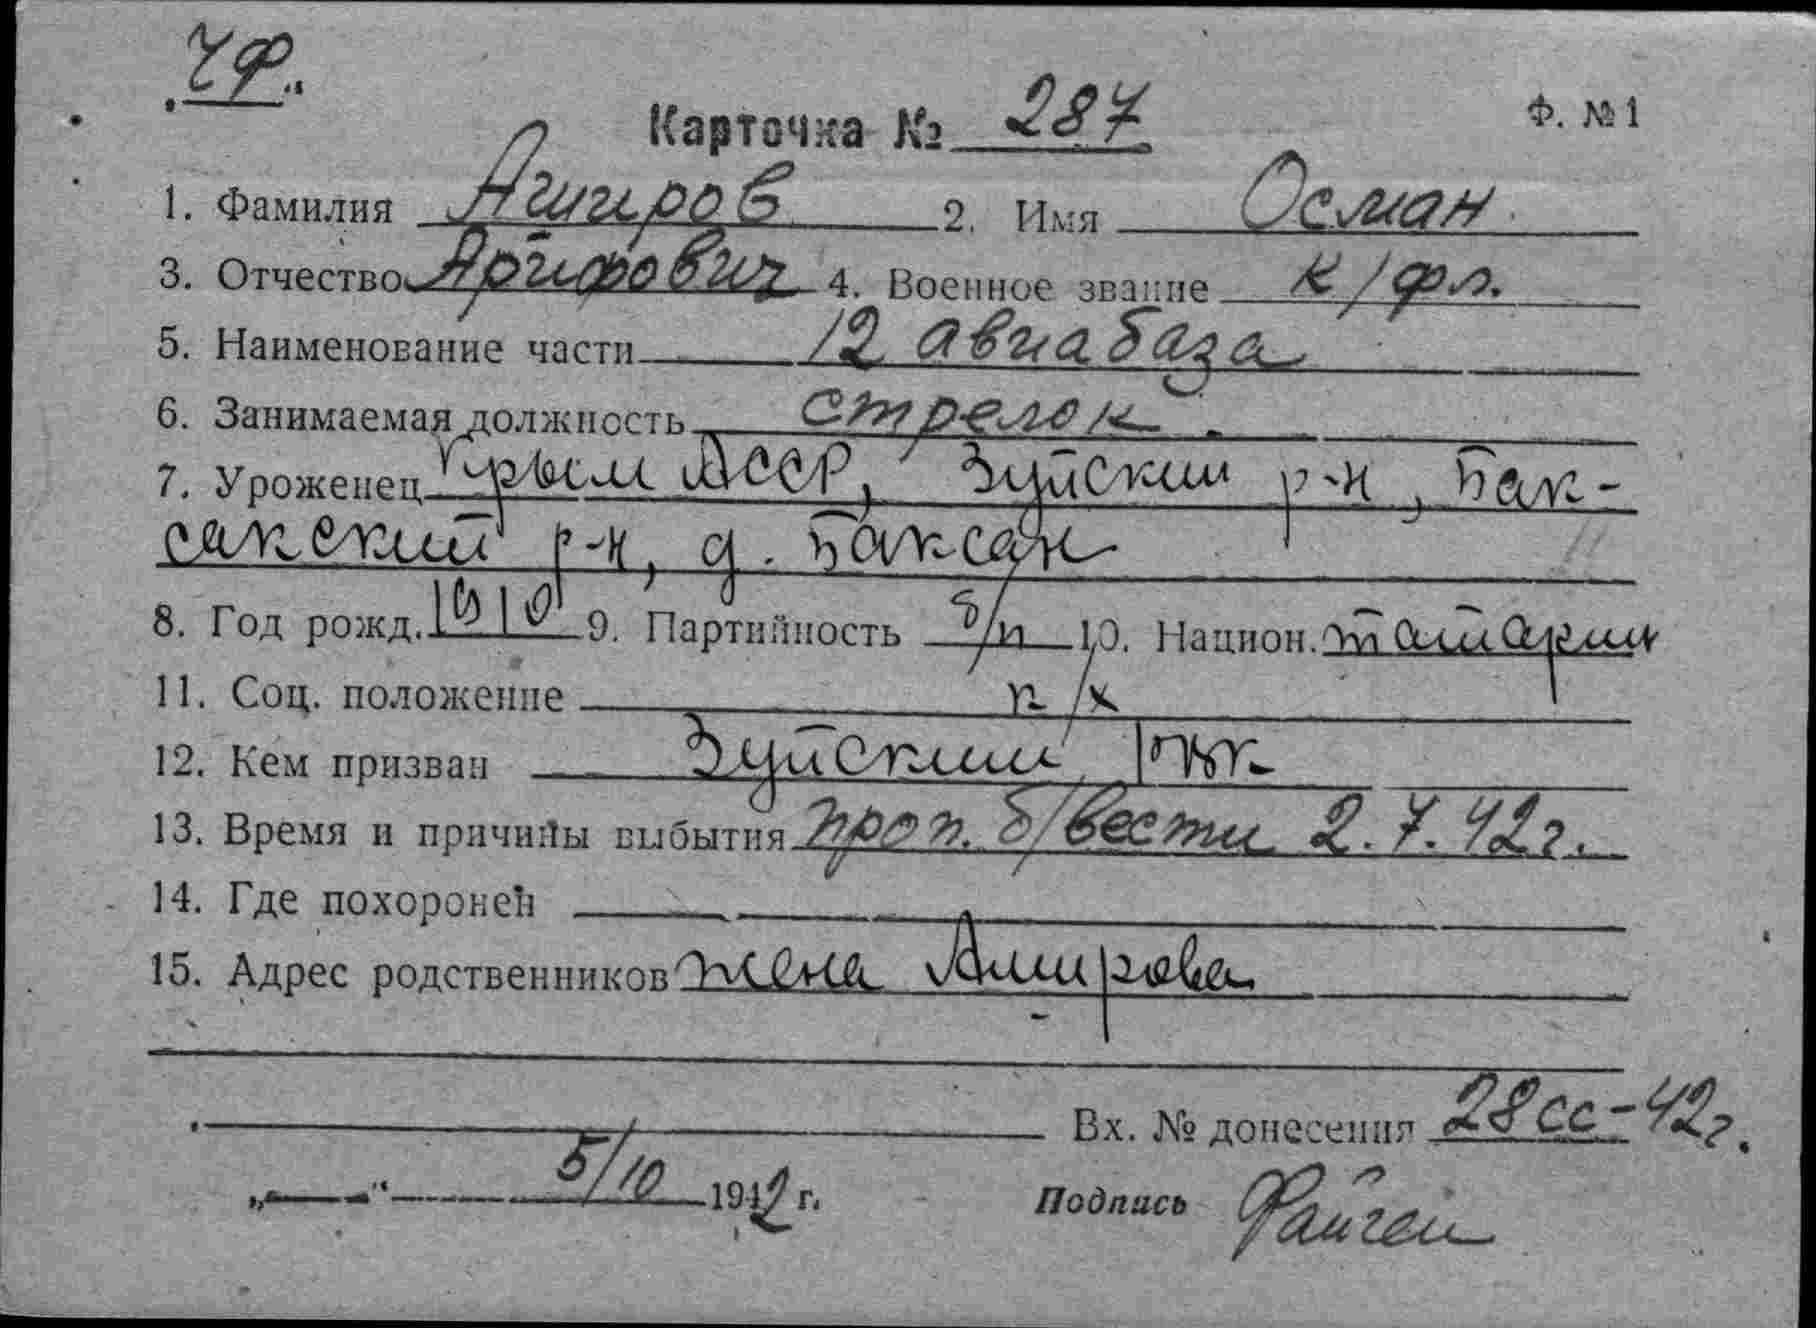 ЧФ.
Карточка № 287
Ф. №1
1. Фамилия Аширов 2. Имя Осман
3. Отчество Арифович 4. Военное звание к/фл.
5. Наименование части 12 авиабаза
6. Занимаемая должность стрелок
7. Уроженец Крым АССР, Зуйский р-н, Бак-
сакский р-н, д. Баксан
8. Год рожд. 1910 9. Партийность б/п 10. Национ. татарин
11. Соц. положение к/х
12. Кем призван Зуйским РВК
13. Время и причины выбытия проп. б/вести 2.7.42г.
14. Где похоронен
15. Адрес родственников жена Аширова
Вх. № донесения 28сс-42г.
„ " 5/10 1942 г.
Подпись